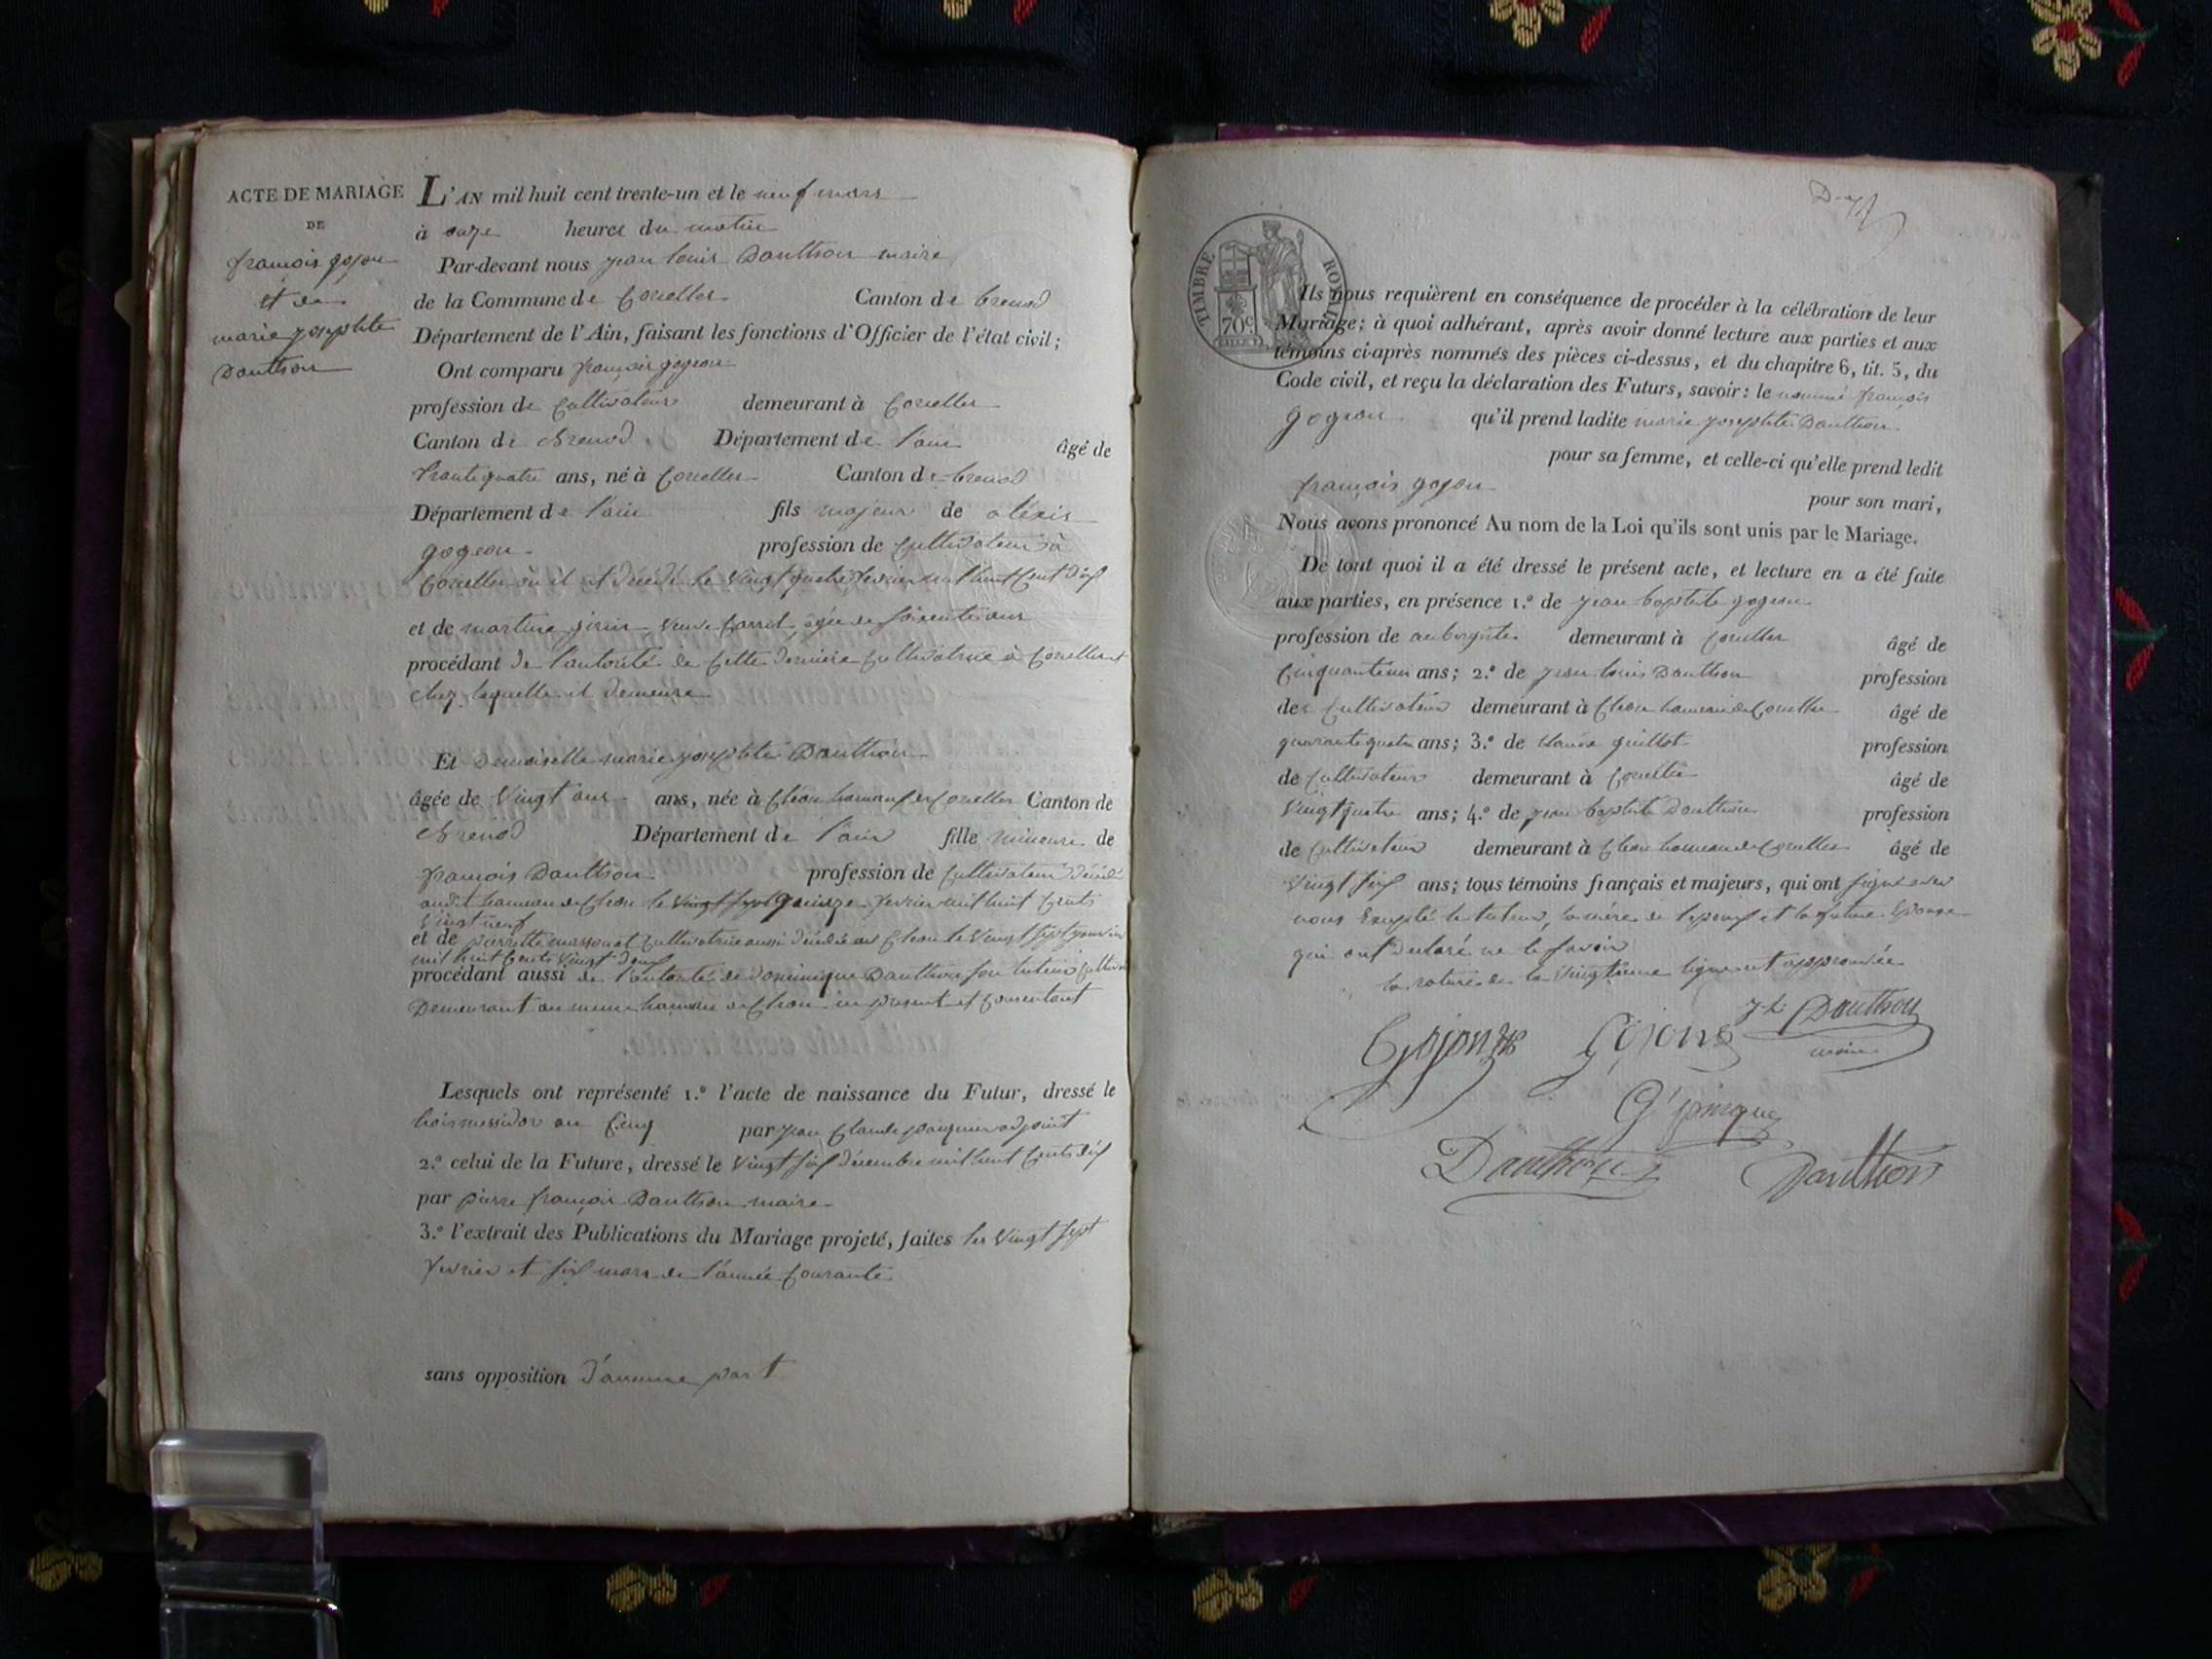 ACTE DE MARIAGE
DE
françois gojon
et de
marie josephte
Dauthon
L'AN mil huit cent trente-un et le neuf mars
à onze heures du matin
Par-devant nous jean louis Dauthon maire
de la Commune de Corcelles Canton de brenod
Département de l'Ain, faisant les fonctions d'Officier de l'état civil;
Ont comparu françois gogeon
profession de Cultivateur demeurant à Corcelles
Canton de Brenod Département de l'ain âgé de
trante quatre ans, né à Corcelles Canton de brenod
Département de l'ain fils majeur de aléxis
gogeon profession de Cultivateur à
Corcelles où il est décédé le Vingt quatre fevrier mil huit Cent dix
et de martine Veuve âgée de soixante ans
procédant de l'autorité de Cette derniere Cultivatrice à Corcelles et
chez laquelle il demeure
Et Demoiselle marie josephte Dauthon
âgée de Vingt ans ans, née à Cléon hameau de Corcelles Canton de
Brenod Département de l'ain fille mineure de
françois Dauthon profession de Cultivateur décédé
audit hameau de Cleon le Vingt sept quinze fevrier mil huit Cents
Vingt neuf
et de pierrette massonat Cultivatrice aussi décédée au Cleon le Vingt sept
mil huit Cents Vingt deux
procédant aussi de l'autorité de Dominique Dauthon son tuteur
Demeurant au meme hameau de Cleon ici present et Consentant
Lesquels ont représenté 1.º l'acte de naissance du Futur, dressé le
trois messidor an Cinq par jean Claude adjoint
2.º celui de la Future, dressé le Vingt six décembre mil huit Cents dix
par pierre françois Dauthon maire
3.º l'extrait des Publications du Mariage projeté, faites les Vingt sept
fevrier et six mars de l'année Courante
sans opposition d'aucune part
TIMBRE ROYAL
70c.
Ils nous requièrent en conséquence de procéder à la célébration de leur
Mariage; à quoi adhérant, après avoir donné lecture aux parties et aux
témoins ci-après nommés des pièces ci-dessus, et du chapitre 6, tit. 5, du
Code civil, et reçu la déclaration des Futurs, savoir: le nommé françois
gogeon qu'il prend ladite marie josephte Dauthon
pour sa femme, et celle-ci qu'elle prend ledit
françois gojon
pour son mari,
Nous avons prononcé Au nom de la Loi qu'ils sont unis par le Mariage.
De tout quoi il a été dressé le présent acte, et lecture en a été faite
aux parties, en présence 1.º de jean baptiste gogeon
profession de aubergiste demeurant à Corcelles âgé de
Cinquante un ans; 2.º de jean louis Dauthon profession
de Cultivateur demeurant à Cleon hameau de Corcelles âgé de
quarante quatre ans; 3.º de Claude guillot profession
de Cultivateur demeurant à Corcelles âgé de
Vingt quatre ans; 4.º de jean baptiste Dauthon profession
de Cultivateur demeurant à Cleon hameau de Corcelles âgé de
Vingt six ans; tous témoins français et majeurs, qui ont signé avec
nous Excepté le tuteur, la mére de l'epoux et la future Epouse
qui ont déclaré ne le savoir
la rature de la Vingtieme ligne est approuvée
Gojon Gojon J L Dauthon
maire
Dauthon Dauthon